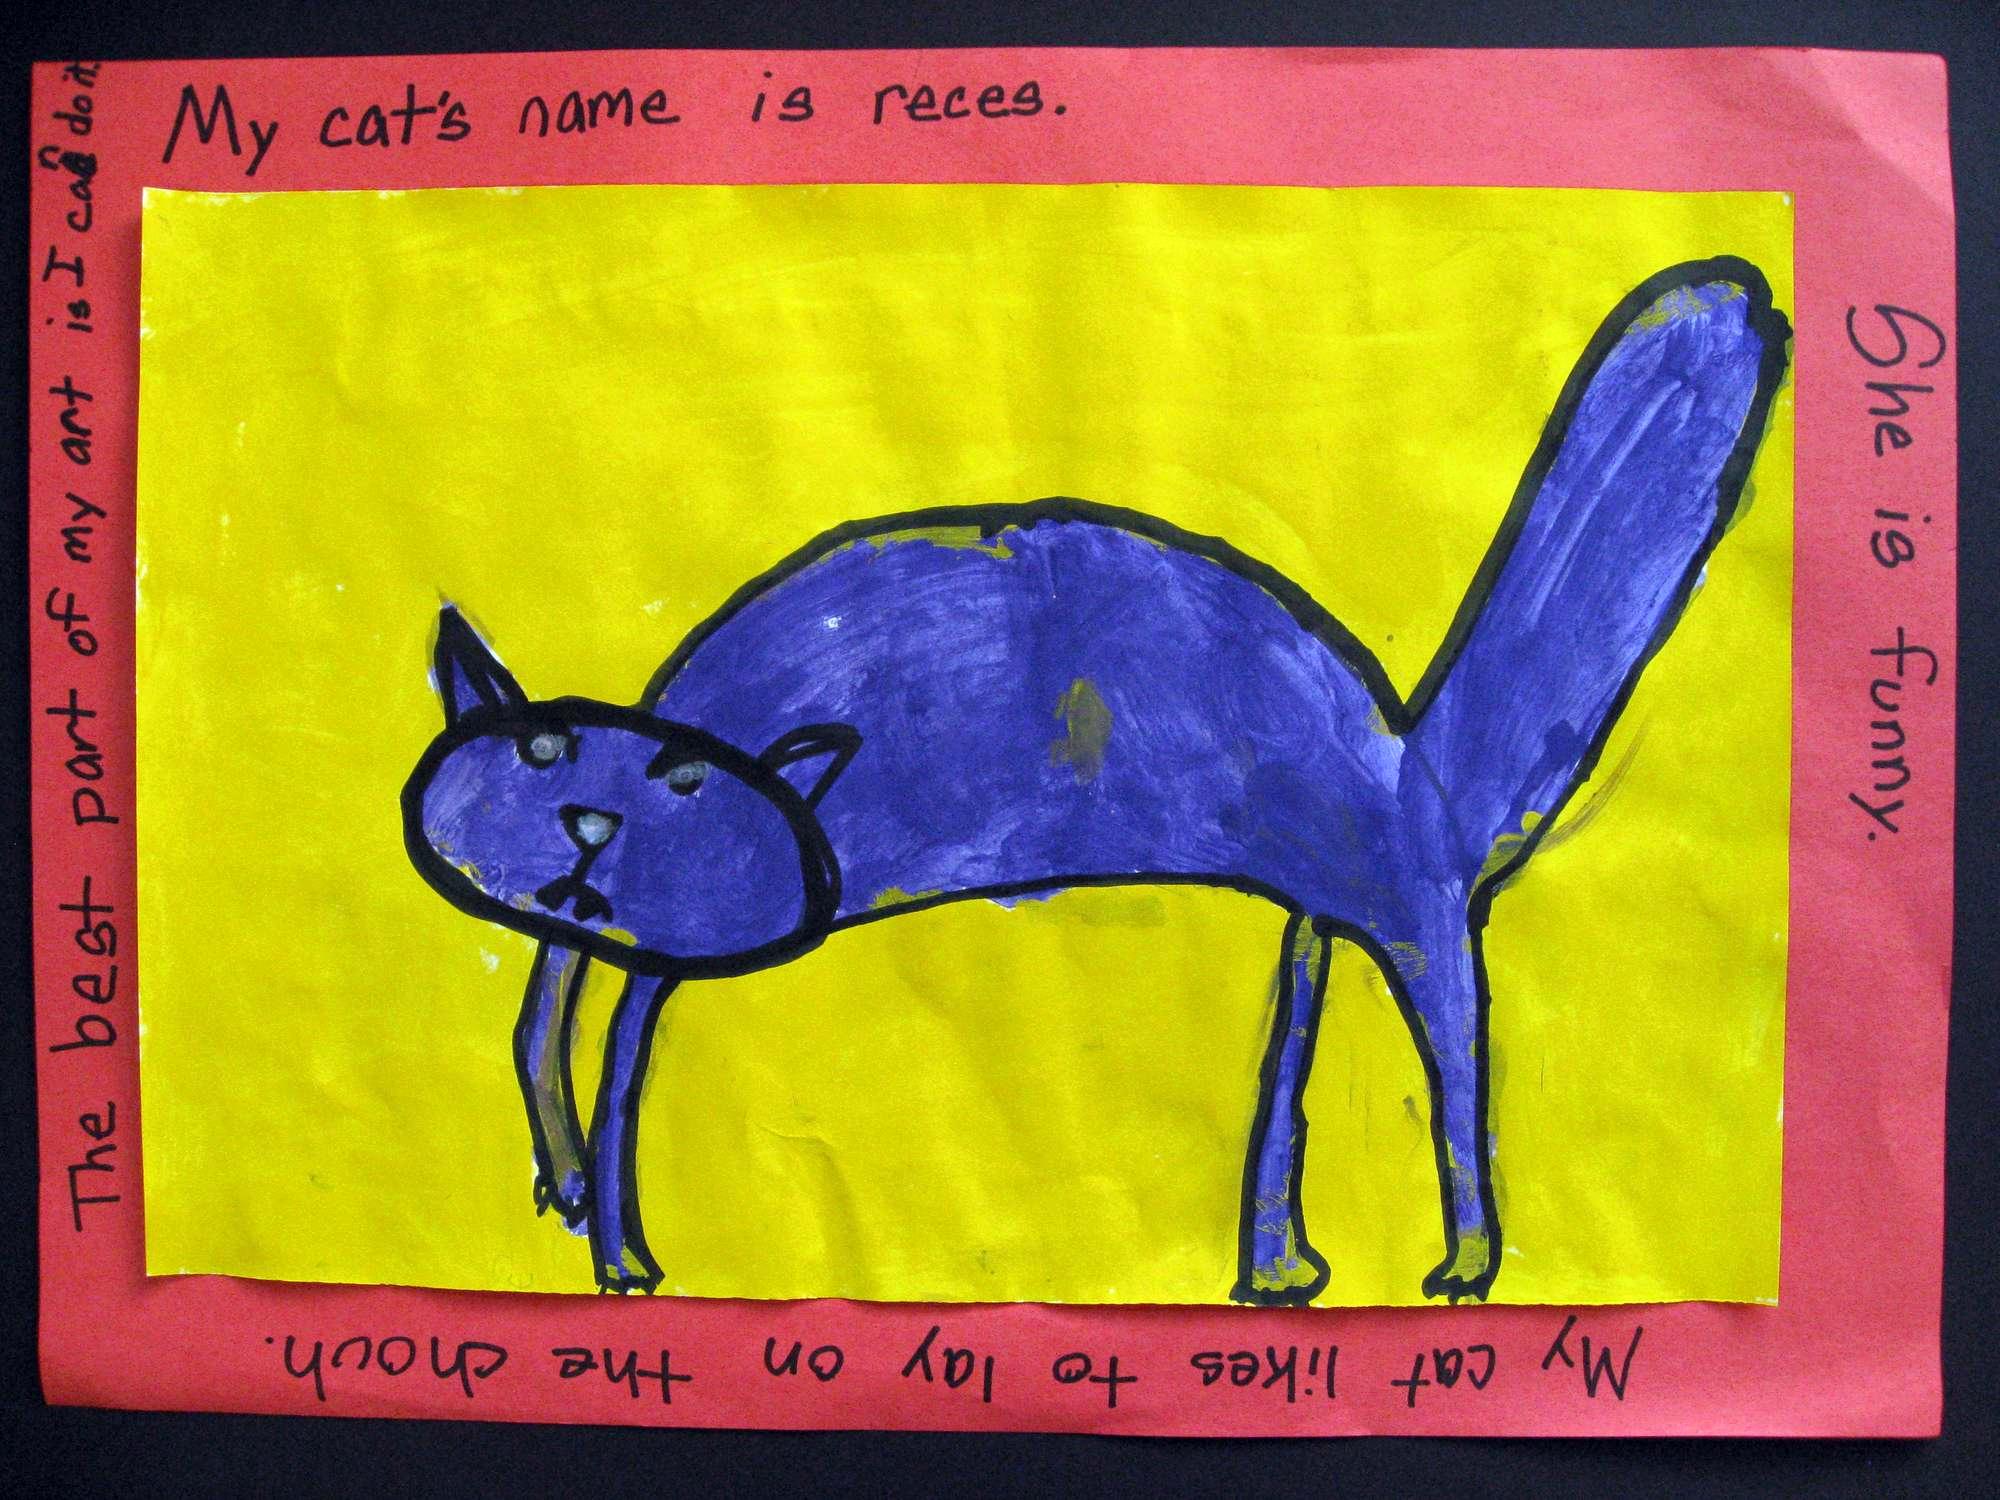 My cat's name is reces.
She is funny.
My cat likes to lay on the chouh.
The best part of my art is I can do it.